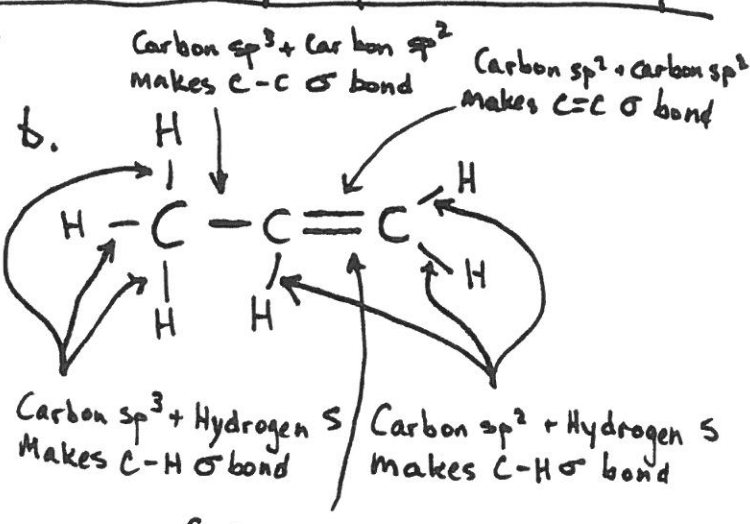 Carbon sp³ + Carbon sp²
makes C-C σ bond
Carbon sp² + Carbon sp²
Makes C=C σ bond
b.
H
H
H - C - C = C
H
H
H
Carbon sp³ + Hydrogen S
Makes C-H σ bond
Carbon sp² + Hydrogen S
makes C-H σ bond